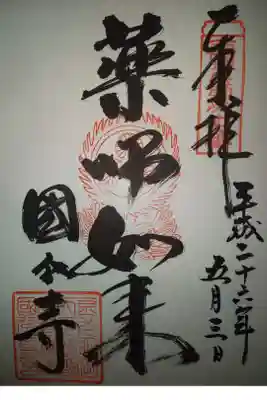 奉拝
平成二十六年
五月三日
藥師如来
國分寺